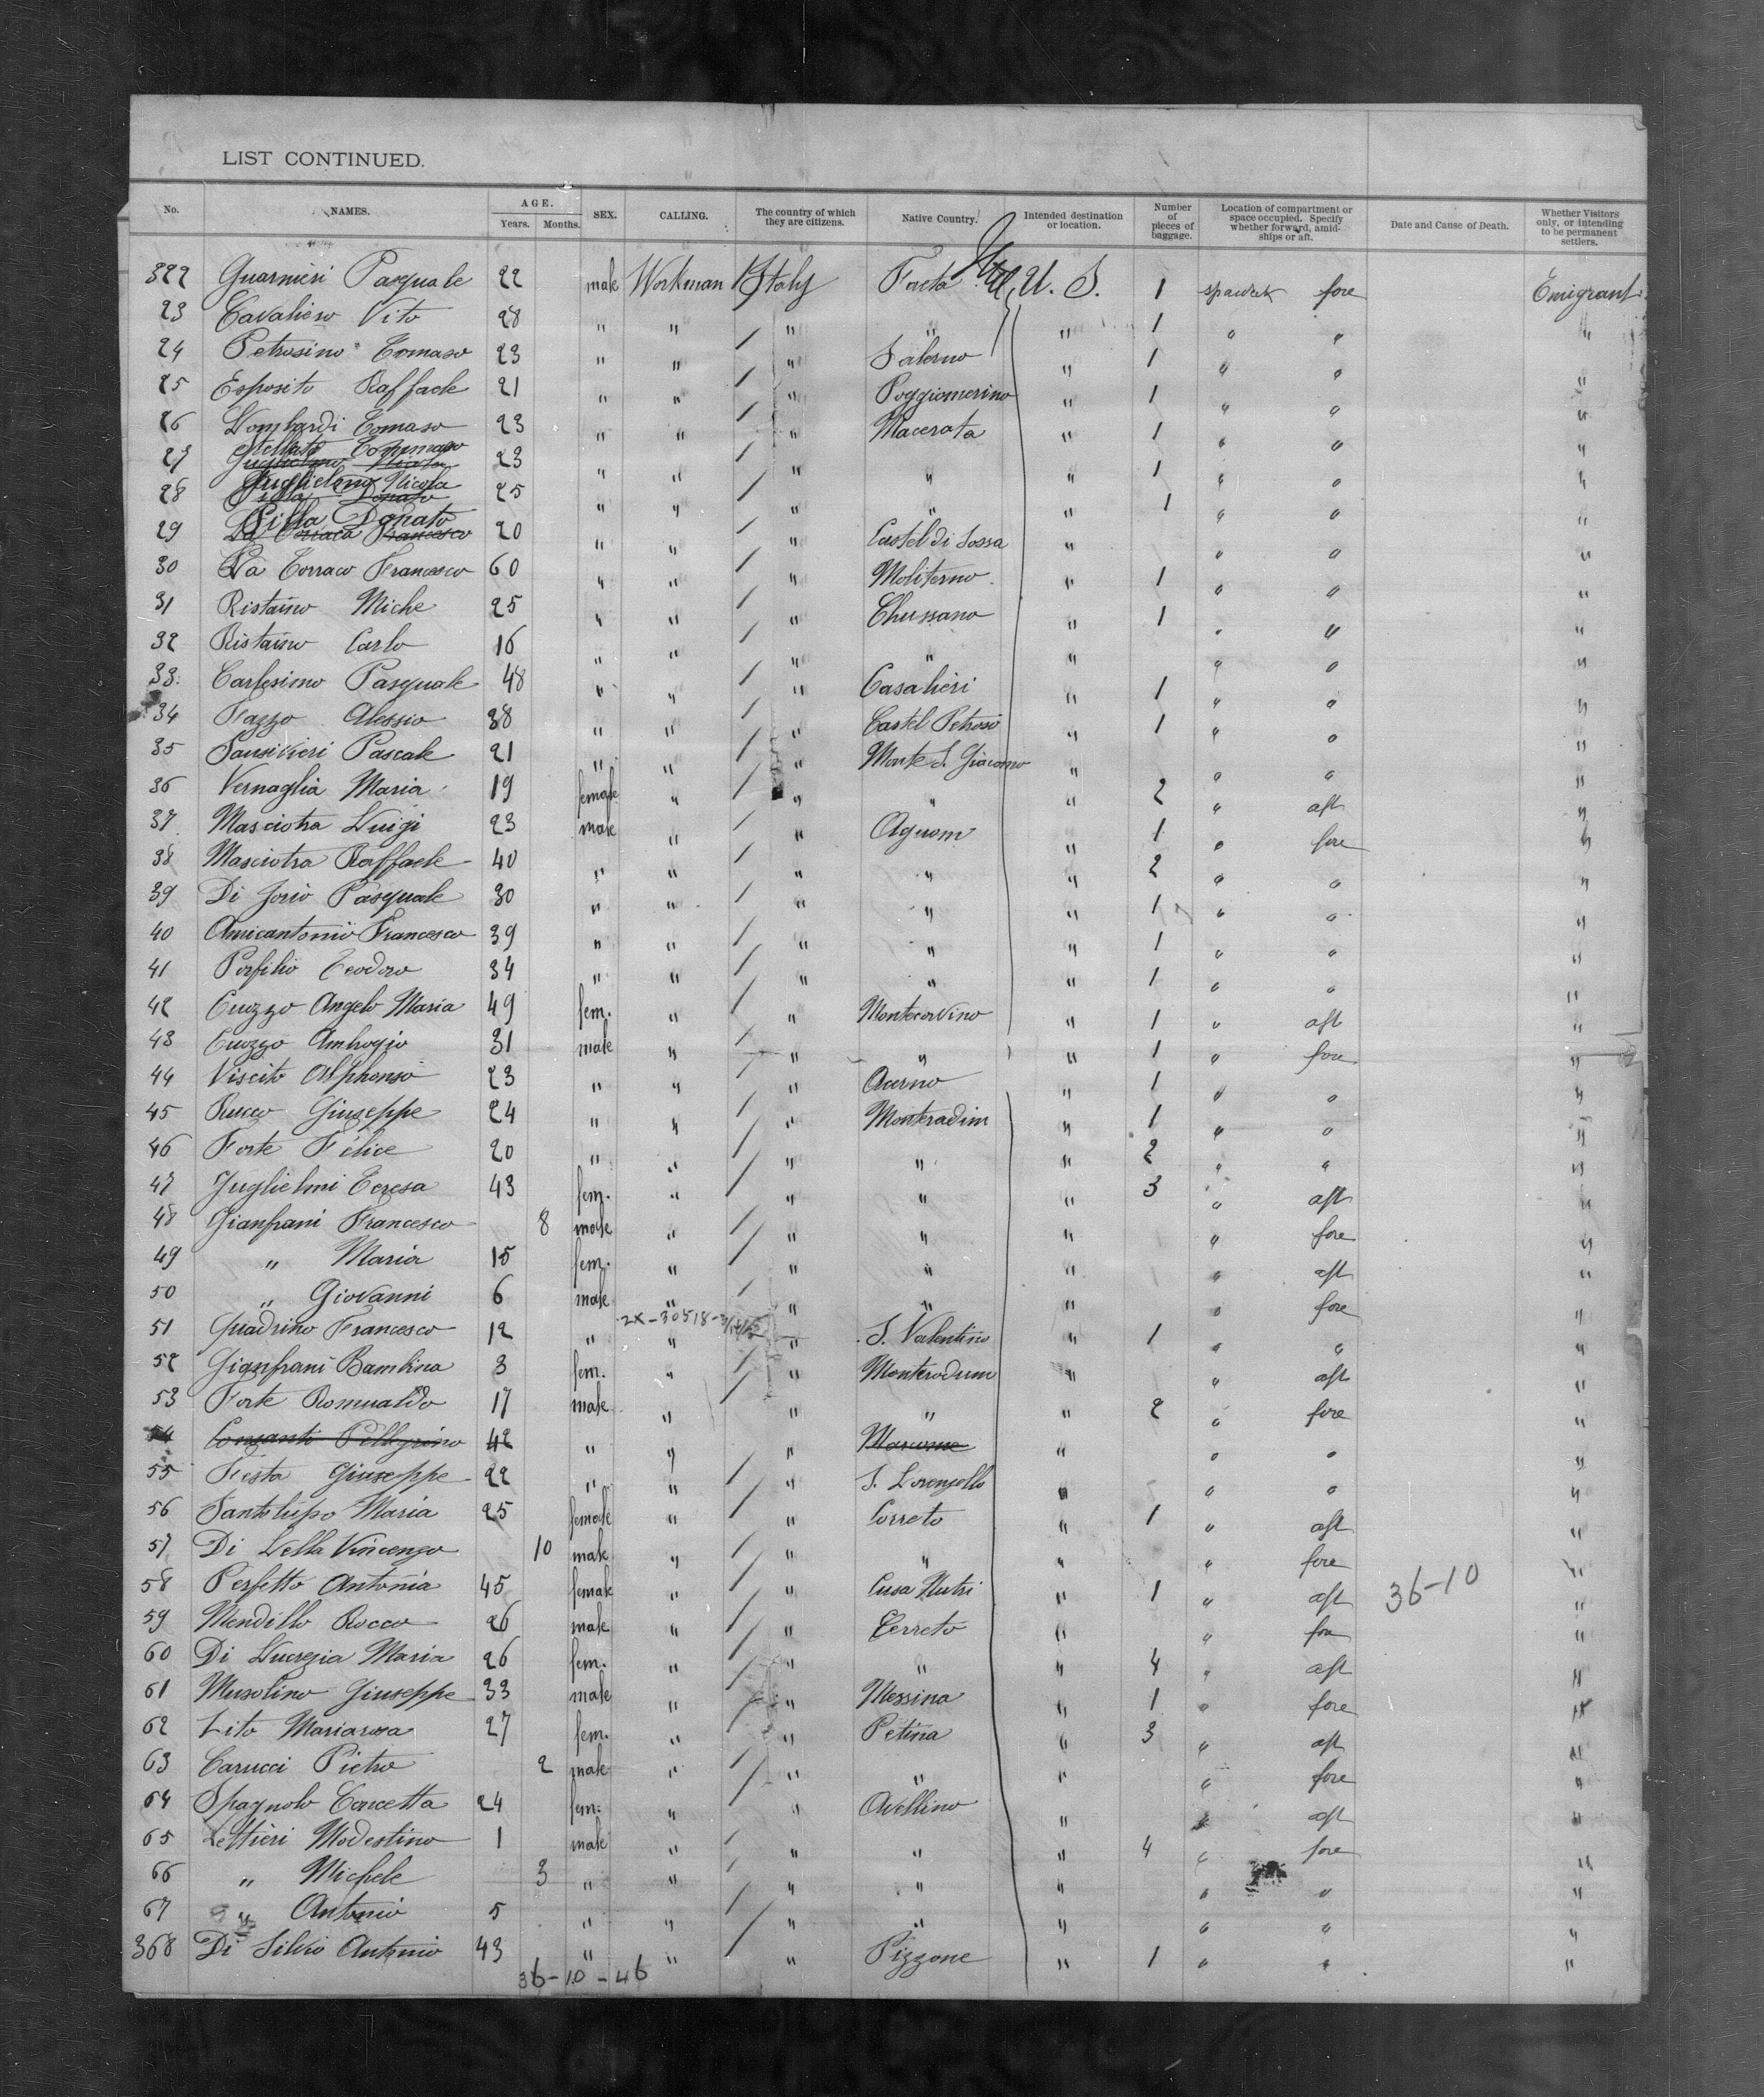 LIST CONTINUED.
No. NAMES. AGE. Years. Months. SEX. CALLING. The country of which they are citizens. Native Country. Intended destination or location. Number of pieces of baggage. Location of compartment or space occupied. Specify whether forward, amidships or aft. Date and Cause of Death. Whether Visitors only, or intending to be permanent settlers.
322 Guarnieri Pasquale 22 male Workman / Italy U. S. 1 fore Emigrant
23 Cavaliero Vito 28 " " / " " " 1 " " "
24 Petrosino Tomaso 23 " " / " Salerno " 1 " " "
25 Esposito Raffaele 21 " " / " Poggiomarino " 1 " " "
26 Lombardi Tomaso 23 " " / " Macerata " 1 " " "
27 Stellato Tommaso Guglielmo Nicola 23 " " / " " " 1 " " "
28 Guglielmo Nicola Pilla Donato 25 " " / " " " 1 " " "
29 Pilla Donato Francesco 20 " " / " Castel di Sossa " " " "
30 La Torraco Francesco 60 " " / " Moliterno " 1 " " "
31 Ristaino Miche 25 " " / " Chussano " 1 " " "
32 Ristaino Carlo 16 " " / " " " " " "
33 Carlesimo Pasquale 48 " " / " Casalieri " 1 " " "
34 Fazzo Alessio 38 " " / " Castel Petroso " 1 " " "
35 Pascale 21 " " / " Monte S. Giacomo " " " "
36 Vernaglia Maria 19 female " / " " " 2 " aft "
37 Masciotra Luigi 23 male " / " Agnom " 1 " fore "
38 Masciotra Raffaele 40 " " / " " " 2 " " "
39 Di Jorio Pasquale 30 " " / " " " 1 " " "
40 Amicantonio Francesco 39 " " / " " " 1 " " "
41 Porfilio Teodoro 34 " " / " " " 1 " " "
42 Cuozzo Angelo Maria 49 fem. " / " Montecorvino " 1 " aft "
43 Cuozzo Ambrogio 31 male " / " " " 1 " fore "
44 Viscito Alphonso 23 " " / " Acerno " 1 " " "
45 Rucco Giuseppe 24 " " / " Monteradim " 1 " " "
46 Forte Felice 20 " " / " " " 2 " " "
47 Guglielmi Teresa 43 fem. " / " " " 3 " aft "
48 Gianfrani Francesco 8 male " / " " " " fore "
49 " Maria 15 fem. " / " " " " aft "
50 " Giovanni 6 male " / " " " " fore "
2X-30518-
51 Quadrino Francesco 12 " " / " S. Valentino " 1 " " "
52 Gianfrani Bambina 3 fem. " / " Monterodum " " aft "
53 Forte Romualdo 17 male " / " " " 2 " fore "
54 Pellegrino 42 " " " Marcone " " " "
55 Festa Giuseppe 22 " " / " S. Lorenzello " " " "
56 Santolupo Maria 25 female " / " Correto " 1 " aft "
57 Di Lella Vincenzo 10 male " / " " " " fore "
58 Perfetto Antonia 45 female " / " Cusa Mutri " 1 " aft 36-10 "
59 Mendillo Rocco 26 male " / " Cerreto " " fore "
60 Di Lucrezia Maria 26 fem. " / " " " 4 " aft "
61 Musolino Giuseppe 33 male " / " Messina " 1 " fore "
62 Zito Mariarosa 27 fem. " / " Petina " 3 " aft "
63 Carucci Pietro 2 male " / " " " " fore "
64 Spagnolo Concetta 24 fem. " / " Avellino " " aft "
65 Lettieri Modestino 1 male " / " " " 4 " fore "
66 " Michele 3 " " / " " " " " "
67 " Antonio 5 " " / " " " " " "
368 Di Silvio Antonio 43 " " / " Pizzone " 1 " " "
36-10-46